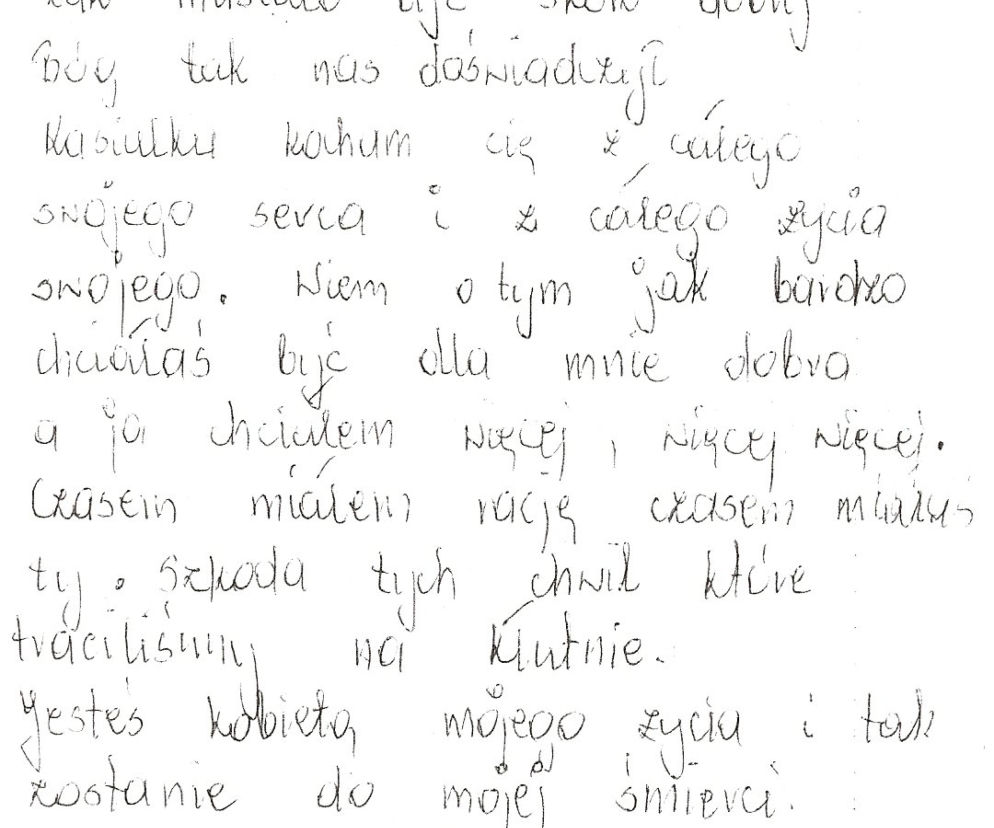 tak musiało być skoro dobry
Bóg tak nas doświadczył
Kasiulku kocham cię z całego
swojego serca i z całego życia
swojego. Wiem o tym jak bardzo
chciałaś być dla mnie dobra
a ja chciałem więcej, więcej więcej.
Czasem miałem rację czasem miałaś
ty. Szkoda tych chwil które
traciliśmy na kłutnie.
Jesteś kobietą mojego życia i tak
zostanie do mojej śmierci.